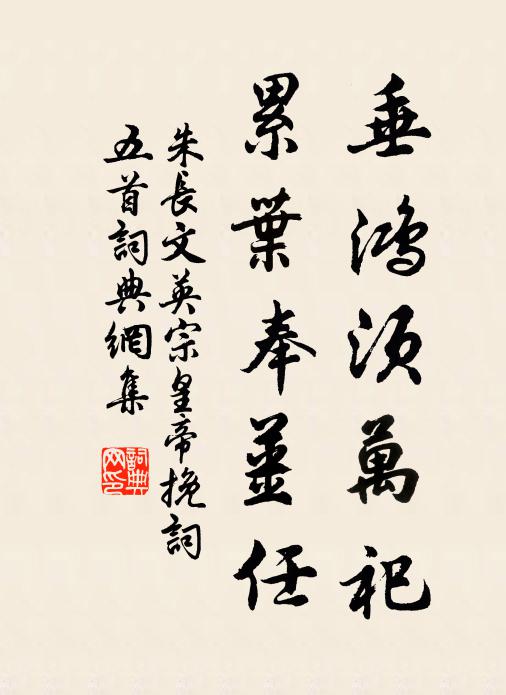 垂鴻須萬祀
累葉奉薑任
朱長文英宗皇帝挽詞
五首詞典網集
詞典网印